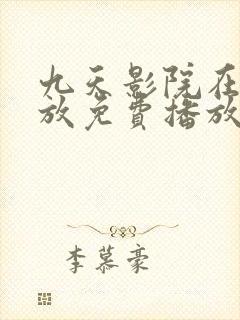 九天影院在
放免费播放
李慕豪